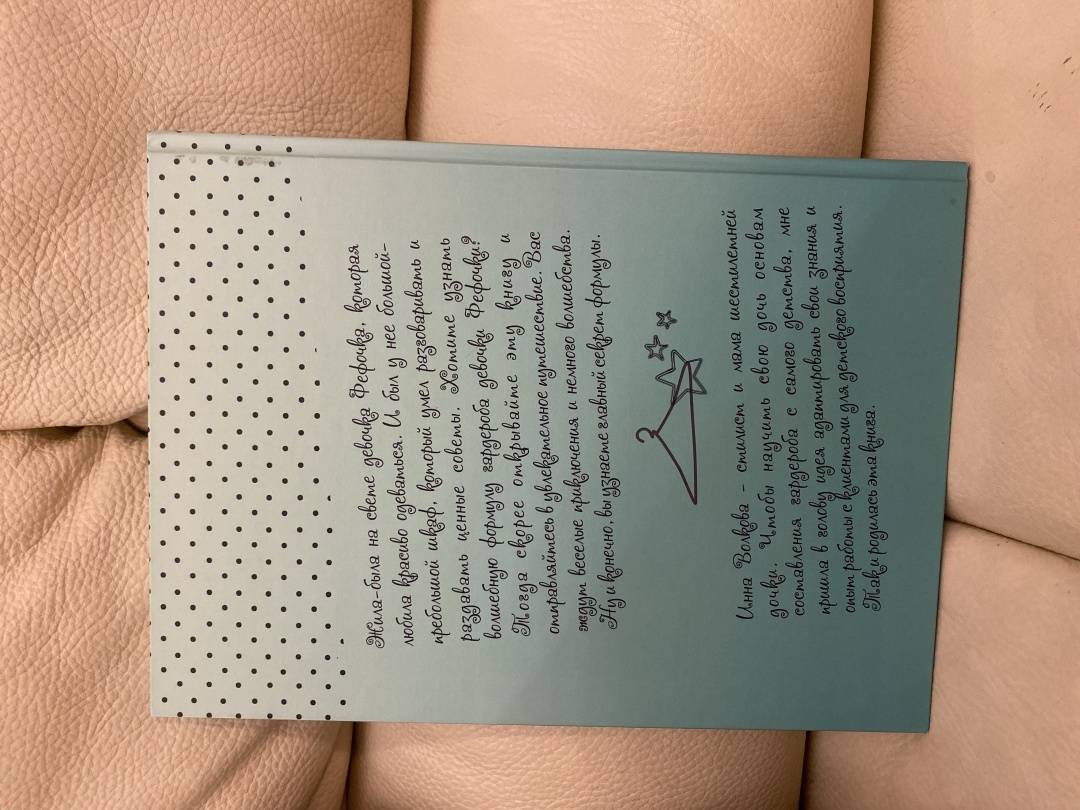 Жила-была на свете девочка Фефочка, которая
любила красиво одеваться. И был у нее большой-
пребольшой шкаф, который умел разговаривать и
раздавать ценные советы. Хотите узнать
волшебную формулу гардероба девочки Фефочки?
Тогда скорее открывайте эту книгу и
отправляйтесь в увлекательное путешествие. Вас
ждут веселые приключения и немного волшебства.
Ну и конечно, вы узнаете главный секрет формулы.
Инна Волкова - стилист и мама шестилетней
дочки. Чтобы научить свою дочь основам
составления гардероба с самого детства, мне
пришла в голову идея адаптировать свои знания и
опыт работы с клиентами для детского восприятия.
Так и родилась эта книга.